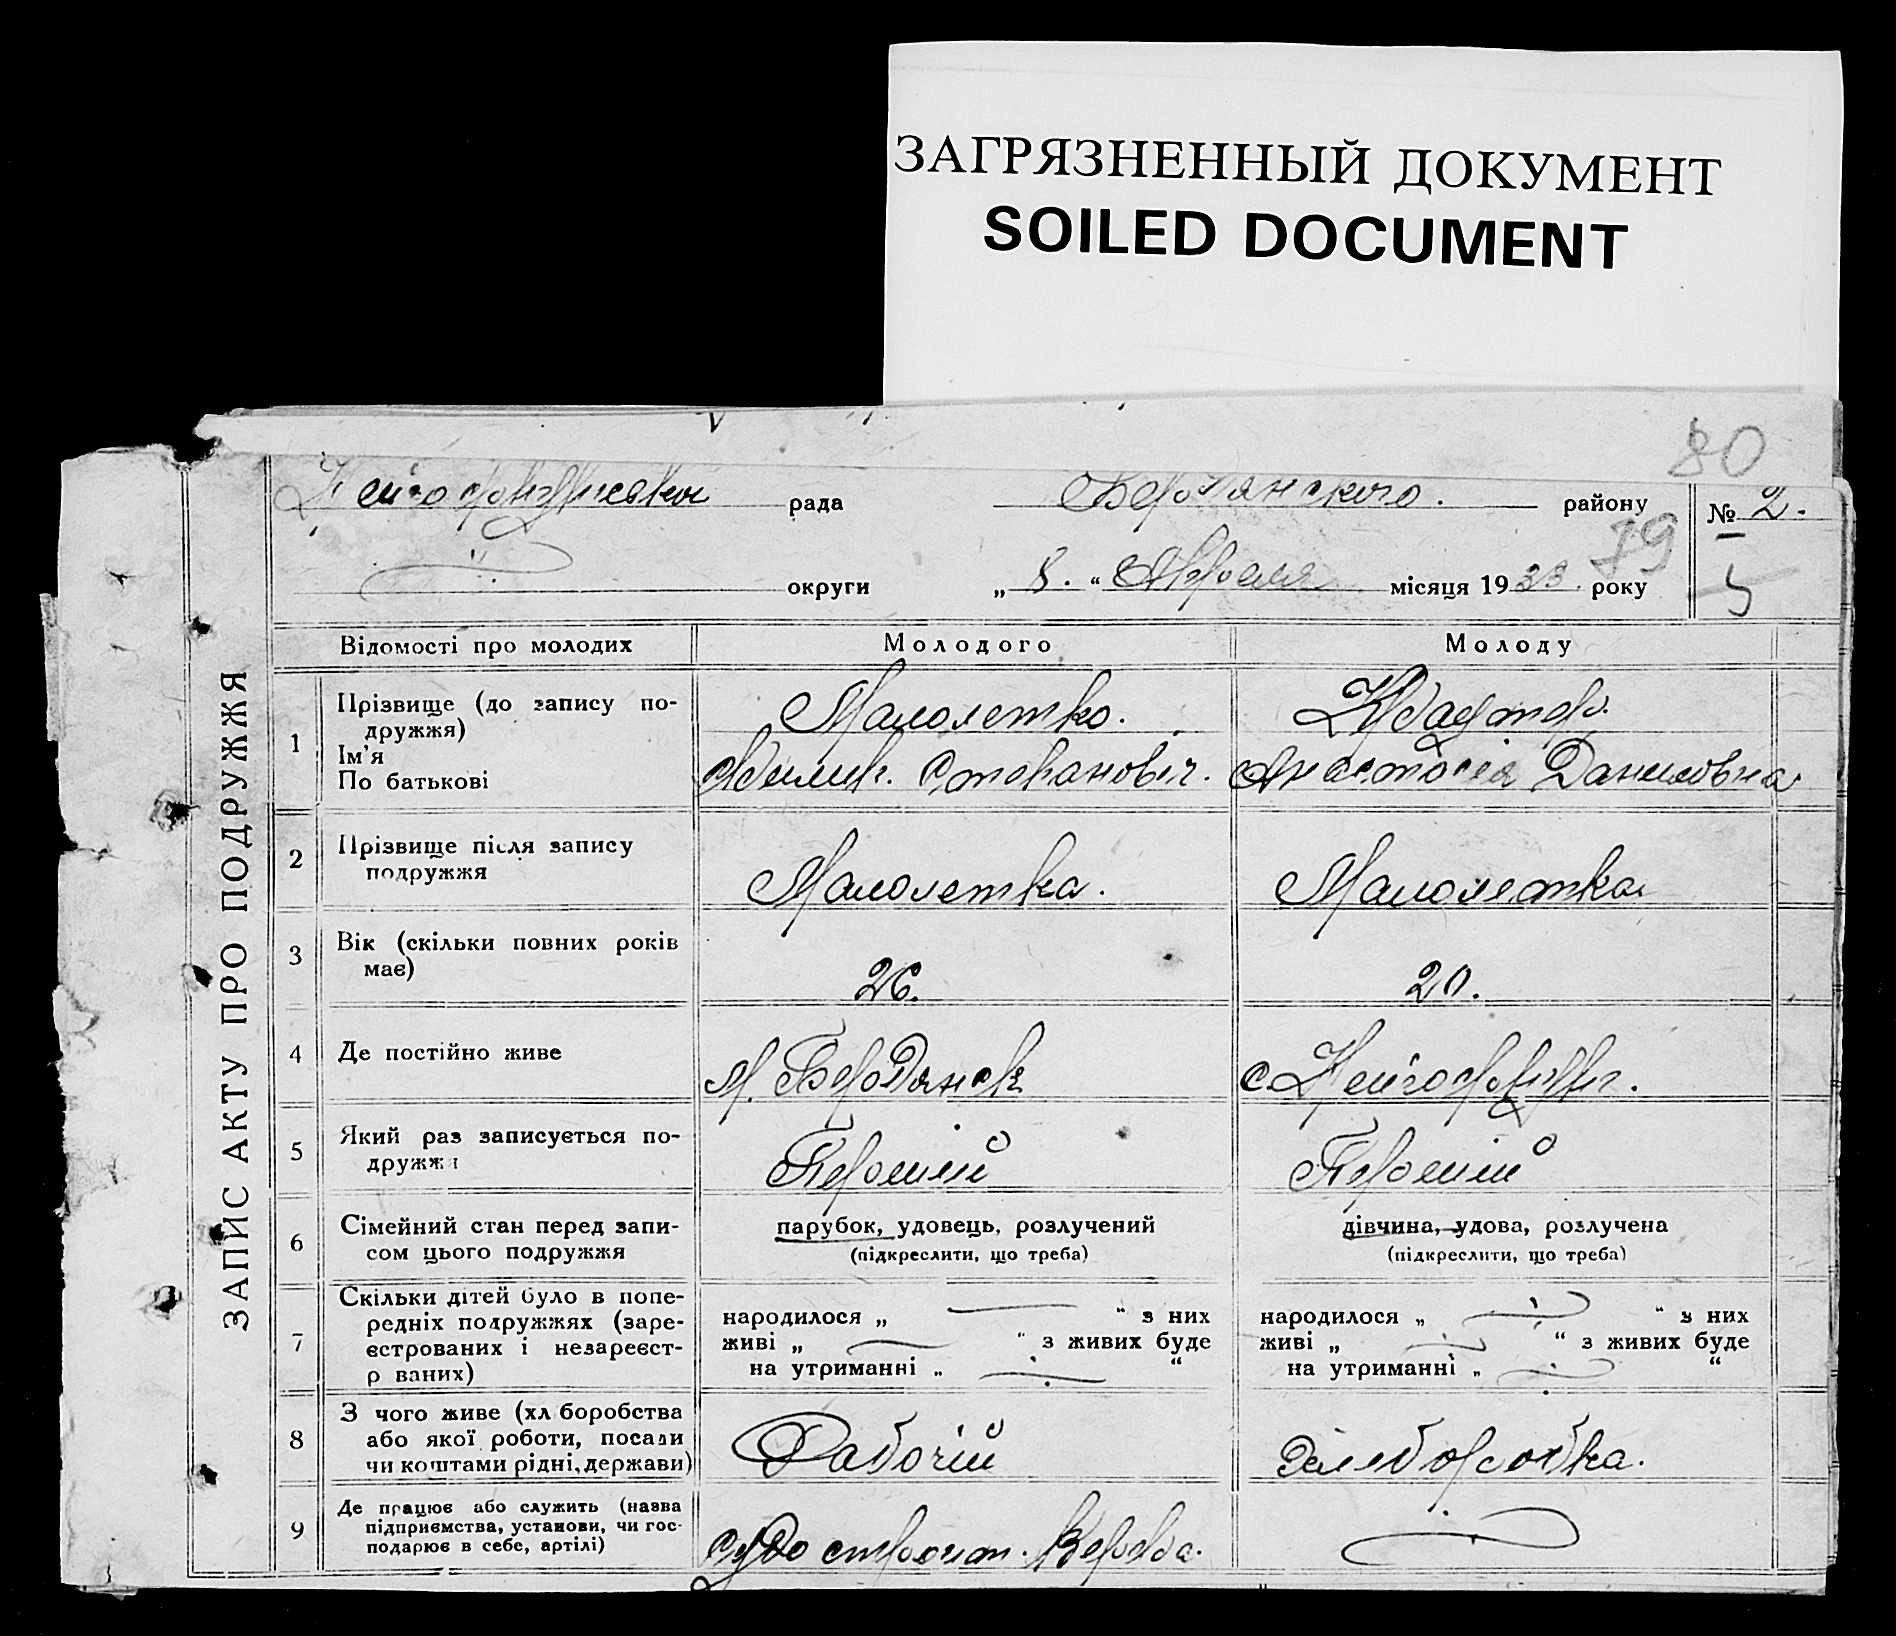 ЗАГРЯЗНЕННЫЙ ДОКУМЕНТ
SOILED DOCUMENT
80
рада Бердянского. району № 2.
79
округи „ 8. “ Апреля місяця 1933. року
5
ЗАПИС АКТУ ПРО ПОДРУЖЖЯ
Відомості про молодих Молодого Молоду
1 Прізвище (до запису по-
дружжя) Малолетко.
Ім'я
По батькові Степанович. Анастосия Даниловна
2 Прізвище після запису
подружжя Малолетка. Малолетка
3 Вік (скільки повних років
має) 26. 20.
4 Де постійно живе м. Бердянск с.
5 Який раз записується по-
дружжя Перший Перший
6 Сімейний стан перед запи-
сом цього подружжя
парубок, удовець, розлучений дівчина, удова, розлучена
(підкреслити, що треба) (підкреслити, що треба)
7 Скільки дітей було в попе-
редніх подружжях (заре-
єстрованих і незареєст-
р ваних)
народилося „ “ з них народилося „ “ з них
живі „ “ з живих буде живі „ “ з живих буде
на утриманні „ “ на утриманні „ “
8 З чого живе (хл боробства
або якої роботи, посади
чи коштами рідні, держави) Рабочій
9 Де працює або служить (назва
підприємства, установи, чи гос-
подарює в себе, артілі)